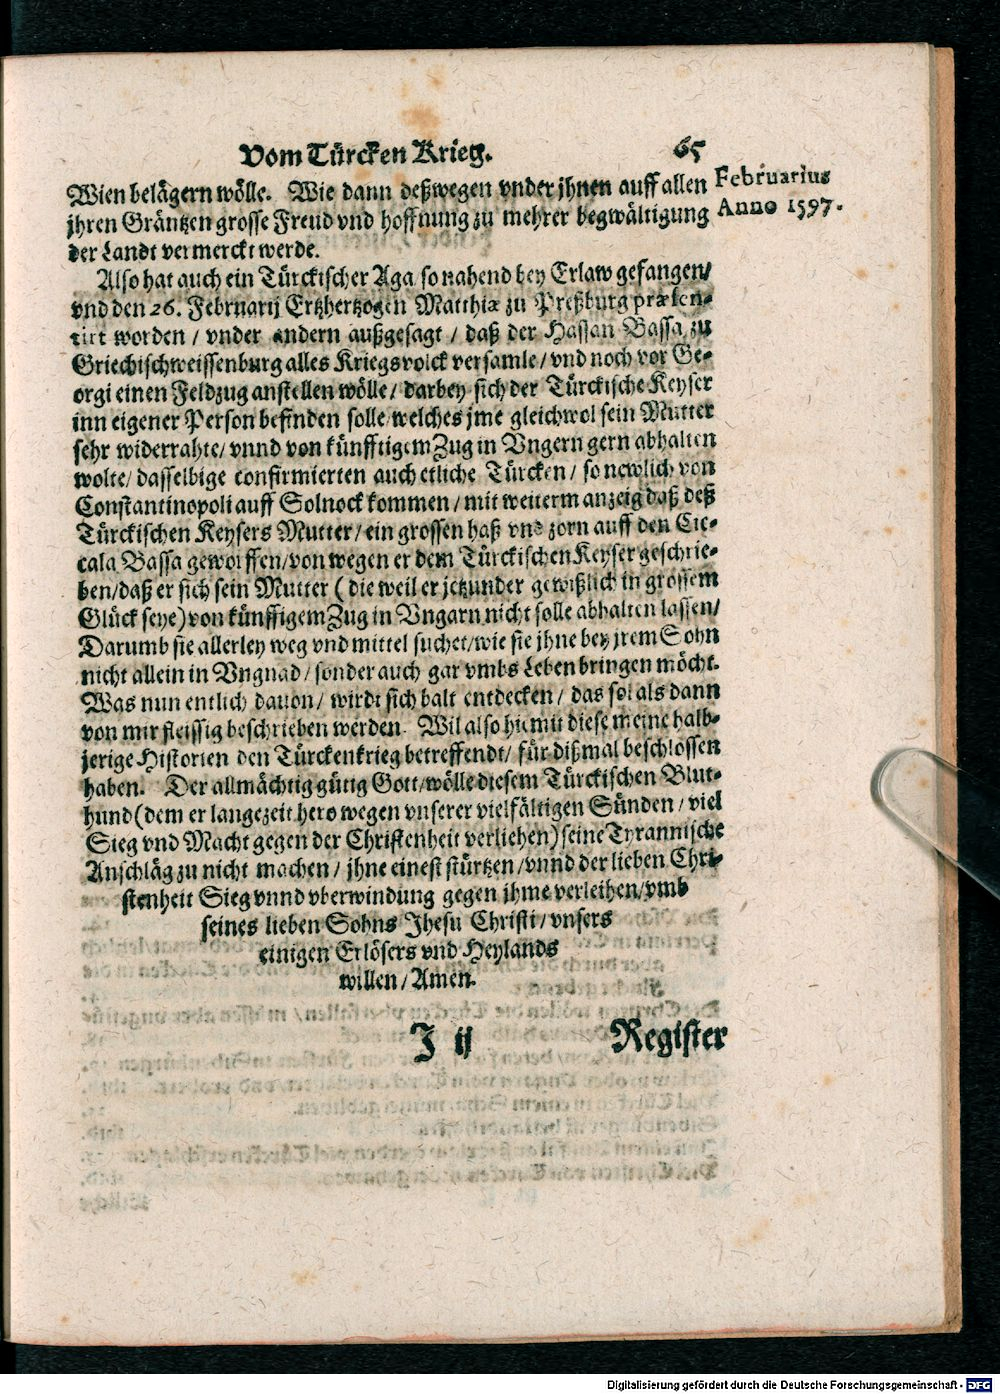 Vom Türcken Krieg. 65
Wien belägern wölle. Wie dann deßwegen vnder jhnen auff allen
Februarius
jhren Gräntzen grosse Freud vnd hoffnung zu mehrer begwältigung
Anno 1597.
der Landt vermerckt werde.
Also hat auch ein Türckischer Aga so nahend bey Erlaw gefangen/
vnd den 26. Februarij Ertzhertzogen Matthiæ zu Preßburg præsen-
tirt worden / vnder andern außgesagt / daß der Hassan Bassa zu
Griechischweissenburg alles Kriegsvolck versamle / vnd noch vor Ge-
orgi einen Feldzug anstellen wölle / darbey sich der Türckische Keyser
inn eigener Person befinden solle / welches jme gleichwol sein Mutter
sehr widerrahte / vnnd von künfftigem Zug in Vngern gern abhalten
wolte / dasselbige confirmierten auch etliche Türcken / so newlich von
Constantinopoli auff Solnock kommen / mit weiterm anzeig daß deß
Türckischen Keysers Mutter / ein grossen haß vnd zorn auff den Cic-
cala Bassa geworffen / von wegen er dem Türckischen Keyser geschrie-
ben / daß er sich sein Mutter ( die weil er jetzunder gewißlich in grossem
Glück seye) von künffigem Zug in Vngarn nicht solle abhalten lassen /
Darumb sie allerley weg vnd mittel suchet / wie sie jhne bey jrem Sohn
nicht allein in Vngnad / sonder auch gar vmbs Leben bringen möcht.
Was nun entlich dauon / wirdt sich balt entdecken / das sol als dann
von mir fleissig beschrieben werden. Wil also hiemit diese meine halb-
jerige Historien den Türckenkrieg betreffendt / für dißmal beschlossen
haben. Der allmächtig gütig Gott / wölle diesem Türckischen Blut-
hund (dem er langezeit hero wegen vnserer vielfältigen Sünden / viel
Sieg vnd Macht gegen der Christenheit verliehen) seine Tyrannische
Anschläg zu nicht machen / jhne einest stürtzen / vnnd der lieben Chri-
stenheit Sieg vnnd vberwindung gegen jhme verleihen / vmb
seines lieben Sohns Jhesu Christi / vnsers
einigen Erlösers vnd Heylands
willen / Amen.
J ij Register
Digitalisierung gefördert durch die Deutsche Forschungsgemeinschaft - DFG